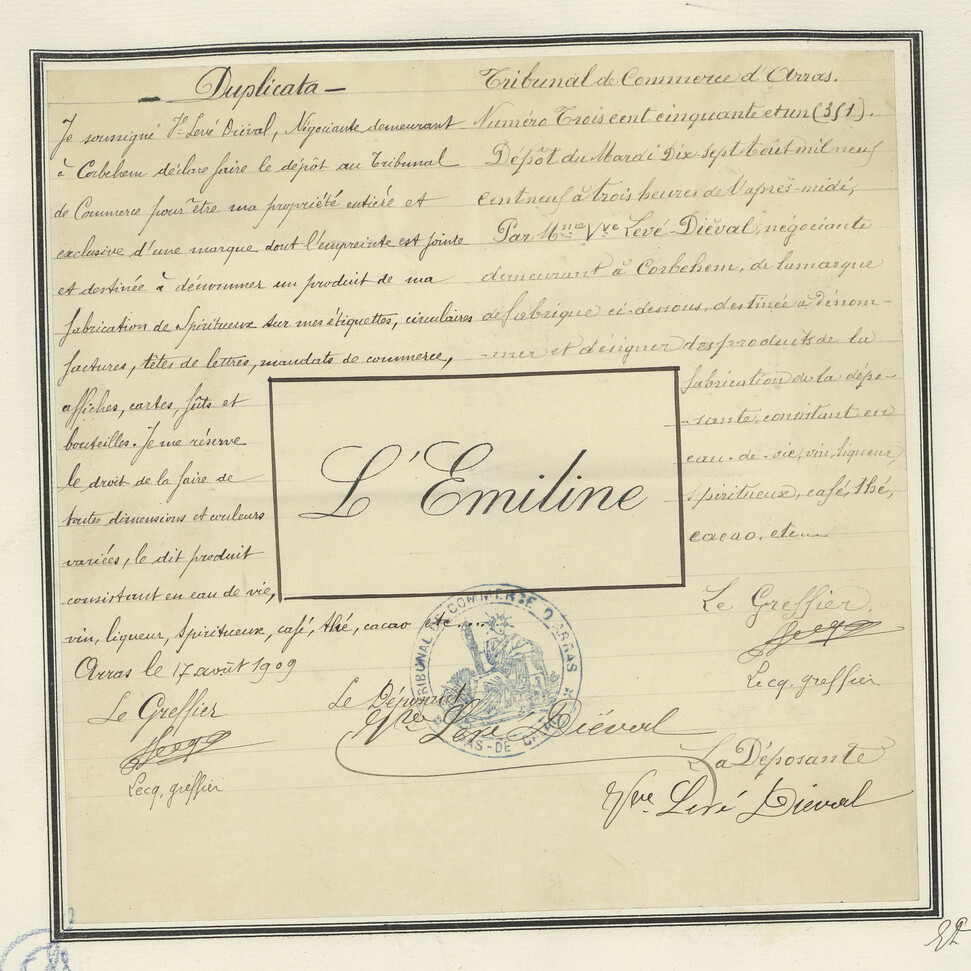 — Duplicata —
Je soussigné Ve Levé Diéval, Négociante demeurant
à Corbehem déclare faire le dépôt au Tribunal
de Commerce pour être ma propriété entière et
exclusive d'une marque dont l'empreinte est jointe
et destinée à dénommer un produit de ma
fabrication de Spiritueux sur mes étiquettes, circulaires
factures, têtes de lettres, mandats de commerce,
affiches, cartes, fûts et
bouteilles. Je me réserve
le droit de la faire de
toutes dimensions et couleurs
variées, le dit produit
consistant en eau de vie,
vin, liqueur, spiritueux, café, thé, cacao etc....
Arras le 17 août 1909
Le Greffier
Lecq
Lecq, greffier
Le Déposant
Vve Levé Diéval
Tribunal de Commerce d'Arras.
Numéro Trois cent cinquante et un (351).
Dépôt du Mardi Dix sept Août mil neuf
cent neuf à trois heures de l'après-midi,
Par Mme Vve Levé-Diéval, négociante
demeurant à Corbehem, de la marque
de fabrique ci-dessous, destinée à dénom-
-mer et désigner des produits de la
fabrication de la dépo-
-sante, consistant en
eau-de-vie, vin, liqueur,
spiritueux, café, thé,
cacao, etc...
Le Greffier.
Lecq
Lecq, greffier
La Déposante
Vve Levé Diéval
L'Emiline
TRIBUNAL DE COMMERCE D'ARRAS
PAS-DE-CALAIS